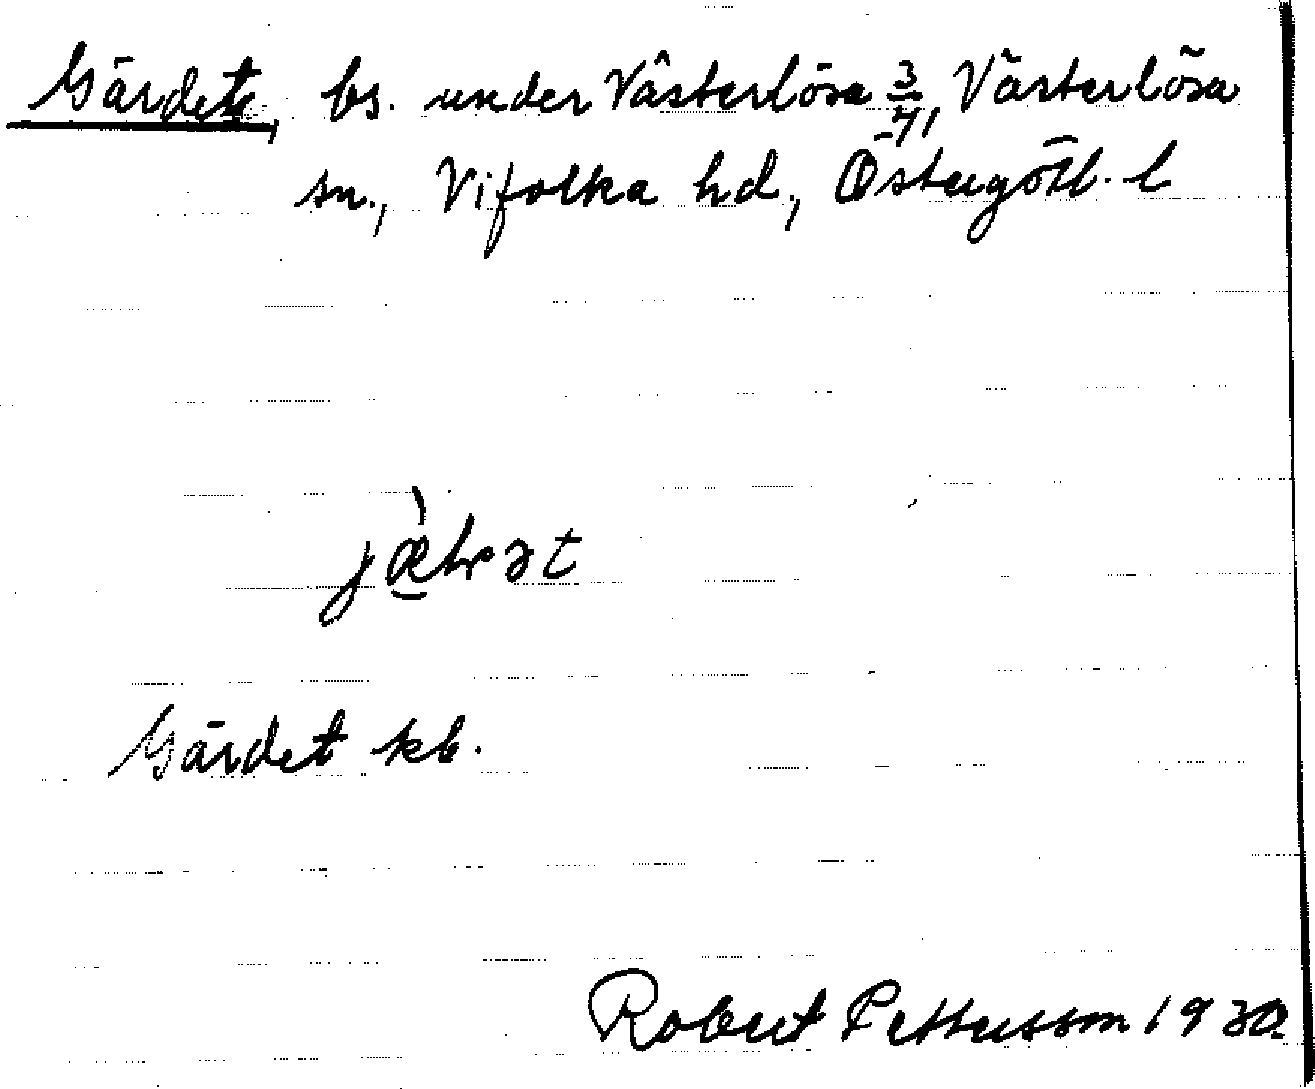 Gärdet, bs. under Västerlösa 3/71, Västerlösa
sn., Vifolka hd, Östergötl. l
Gärdet kb.
Robert Pettersson 1930